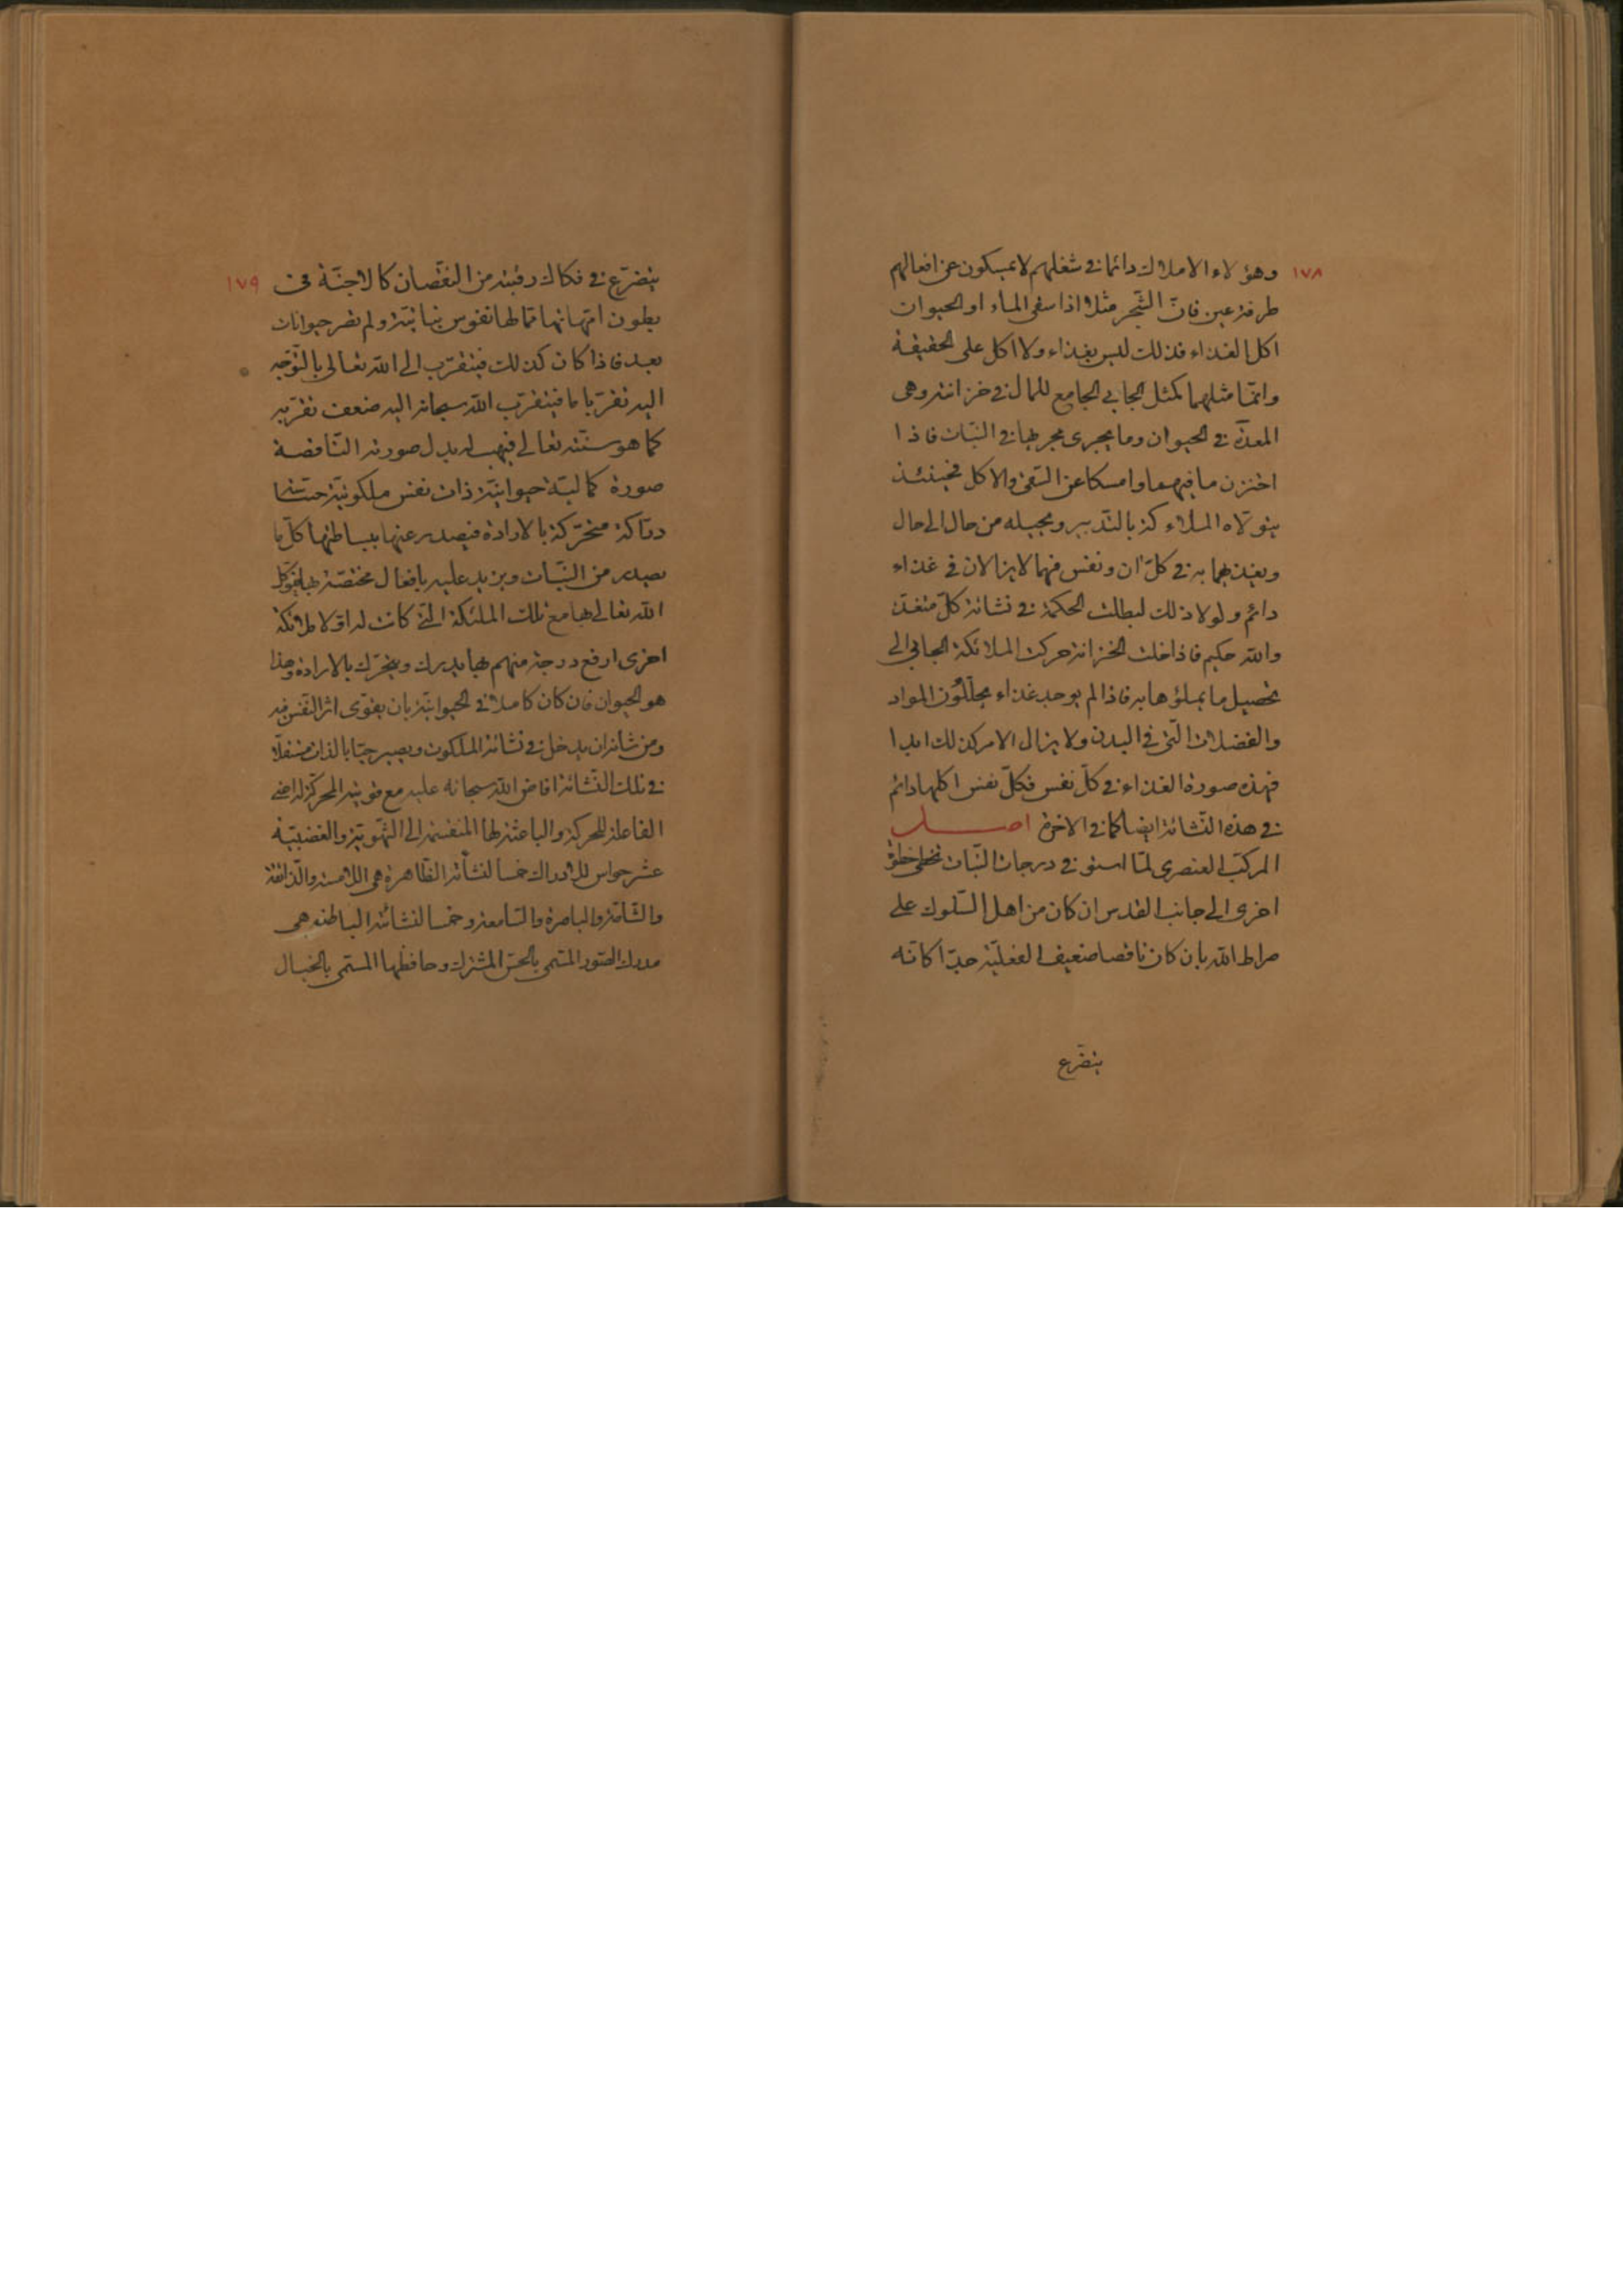 ١٧٨
وهؤلاء الاملاك دائما في شغلهم لا يمسكون عن افعالهم
طرفة عين فانّ الشّجر مثلا اذا سقى الماء او الحيوان
اكل الغذاء فذلك ليس بغذاء ولا اكل على الحقيقة
وانّما مثلهما كمثل الجابي الجامع للمال في خزانته وهى
المعدة في الحيوان وما يجرى مجريها في النّبات فاذا
اختزن ما فيهما وامسكا عن السّقى والاكل فحينئذ
يتولاه الملائكة بالتّدبير ويحيله من حال الى حال
ويغذيهما به في كلّ ان ونفس فهما لا يزالان في غذاء
دائم ولولا ذلك لبطلت الحكمة في نشاة كلّ متغذ
والله حكيم فاذا خلت الخزانة حركت الملائكة الجابي الى
تحصيل ما يملؤها به فاذا لم يوجد غذاء يحلّلون المواد
والفضلات الّتي في البدن ولا يزال الامر كذلك ابدا
فهذه صورة الغذاء في كلّ نفس فكلّ نفس اكلها دائم
في هذه النّشاة ايضا كما في الاخرة اصل
المركّب العنصرى لمّا استوفى درجات النّبات تخطّى خطوة
اخرى الى جانب القدس ان كان من اهل السّلوك على
صراط الله بان كان ناقصا ضعيف الفعليّة جدّا كانّه
يتضرّع
١٧٩
يتضرّع في فكاك رقبته من النقصان كالاجنّة في
بطون امّهاتها ممّا لها نفوس نباتيّة ولم تصر حيوانات
بعد فاذا كان كذلك فيتقرّب الى الله تعالى بالتّوجّه
اليه تقرّبا ما فيتقرّب الله سبحانه اليه ضعف تقرّبه
كما هو سنّته تعالى فيهب له بدل صورته النّاقصة
صورة كماليّة حيوانيّة ذات نفس ملكوتيّة حسّاسة
درّاكة متحرّكة بالارادة فيصدر عنها ببساطتها كلّ ما
يصدر من النّبات ويزيد عليه بافعال مختصّة بها فيوكّل
الله تعالى بها مع تلك الملئكة الّتي كانت له اوّلا ملائكة
اخرى ارفع درجة منهم بها يدرك ويتحرّك بالارادة وهذا
هو الحيوان فان كان كاملا في الحيوانيّة بان يقوى اثر النّفس فيه
ومن شانه ان يدخل في نشاة الملكوت ويصير حيّا بالذات مستقلّا
في تلك النّشاة افاض الله سبحانه عليه مع قوّتيه المحرّكة له اعنى
الفاعلة للحركة والباعثة لها المنقسمة الى الشّهويّة والغضبيّة
عشر حواس للادراك خمسا لنشأته الظّاهرة هي اللامسة والذّائقة
والشّامّة والباصرة والسّامعة وخمسا لنشاته الباطنة هي
مدرك الصّور المسمّى بالحسّ المشترك وحافظها المسمّى بالخيال